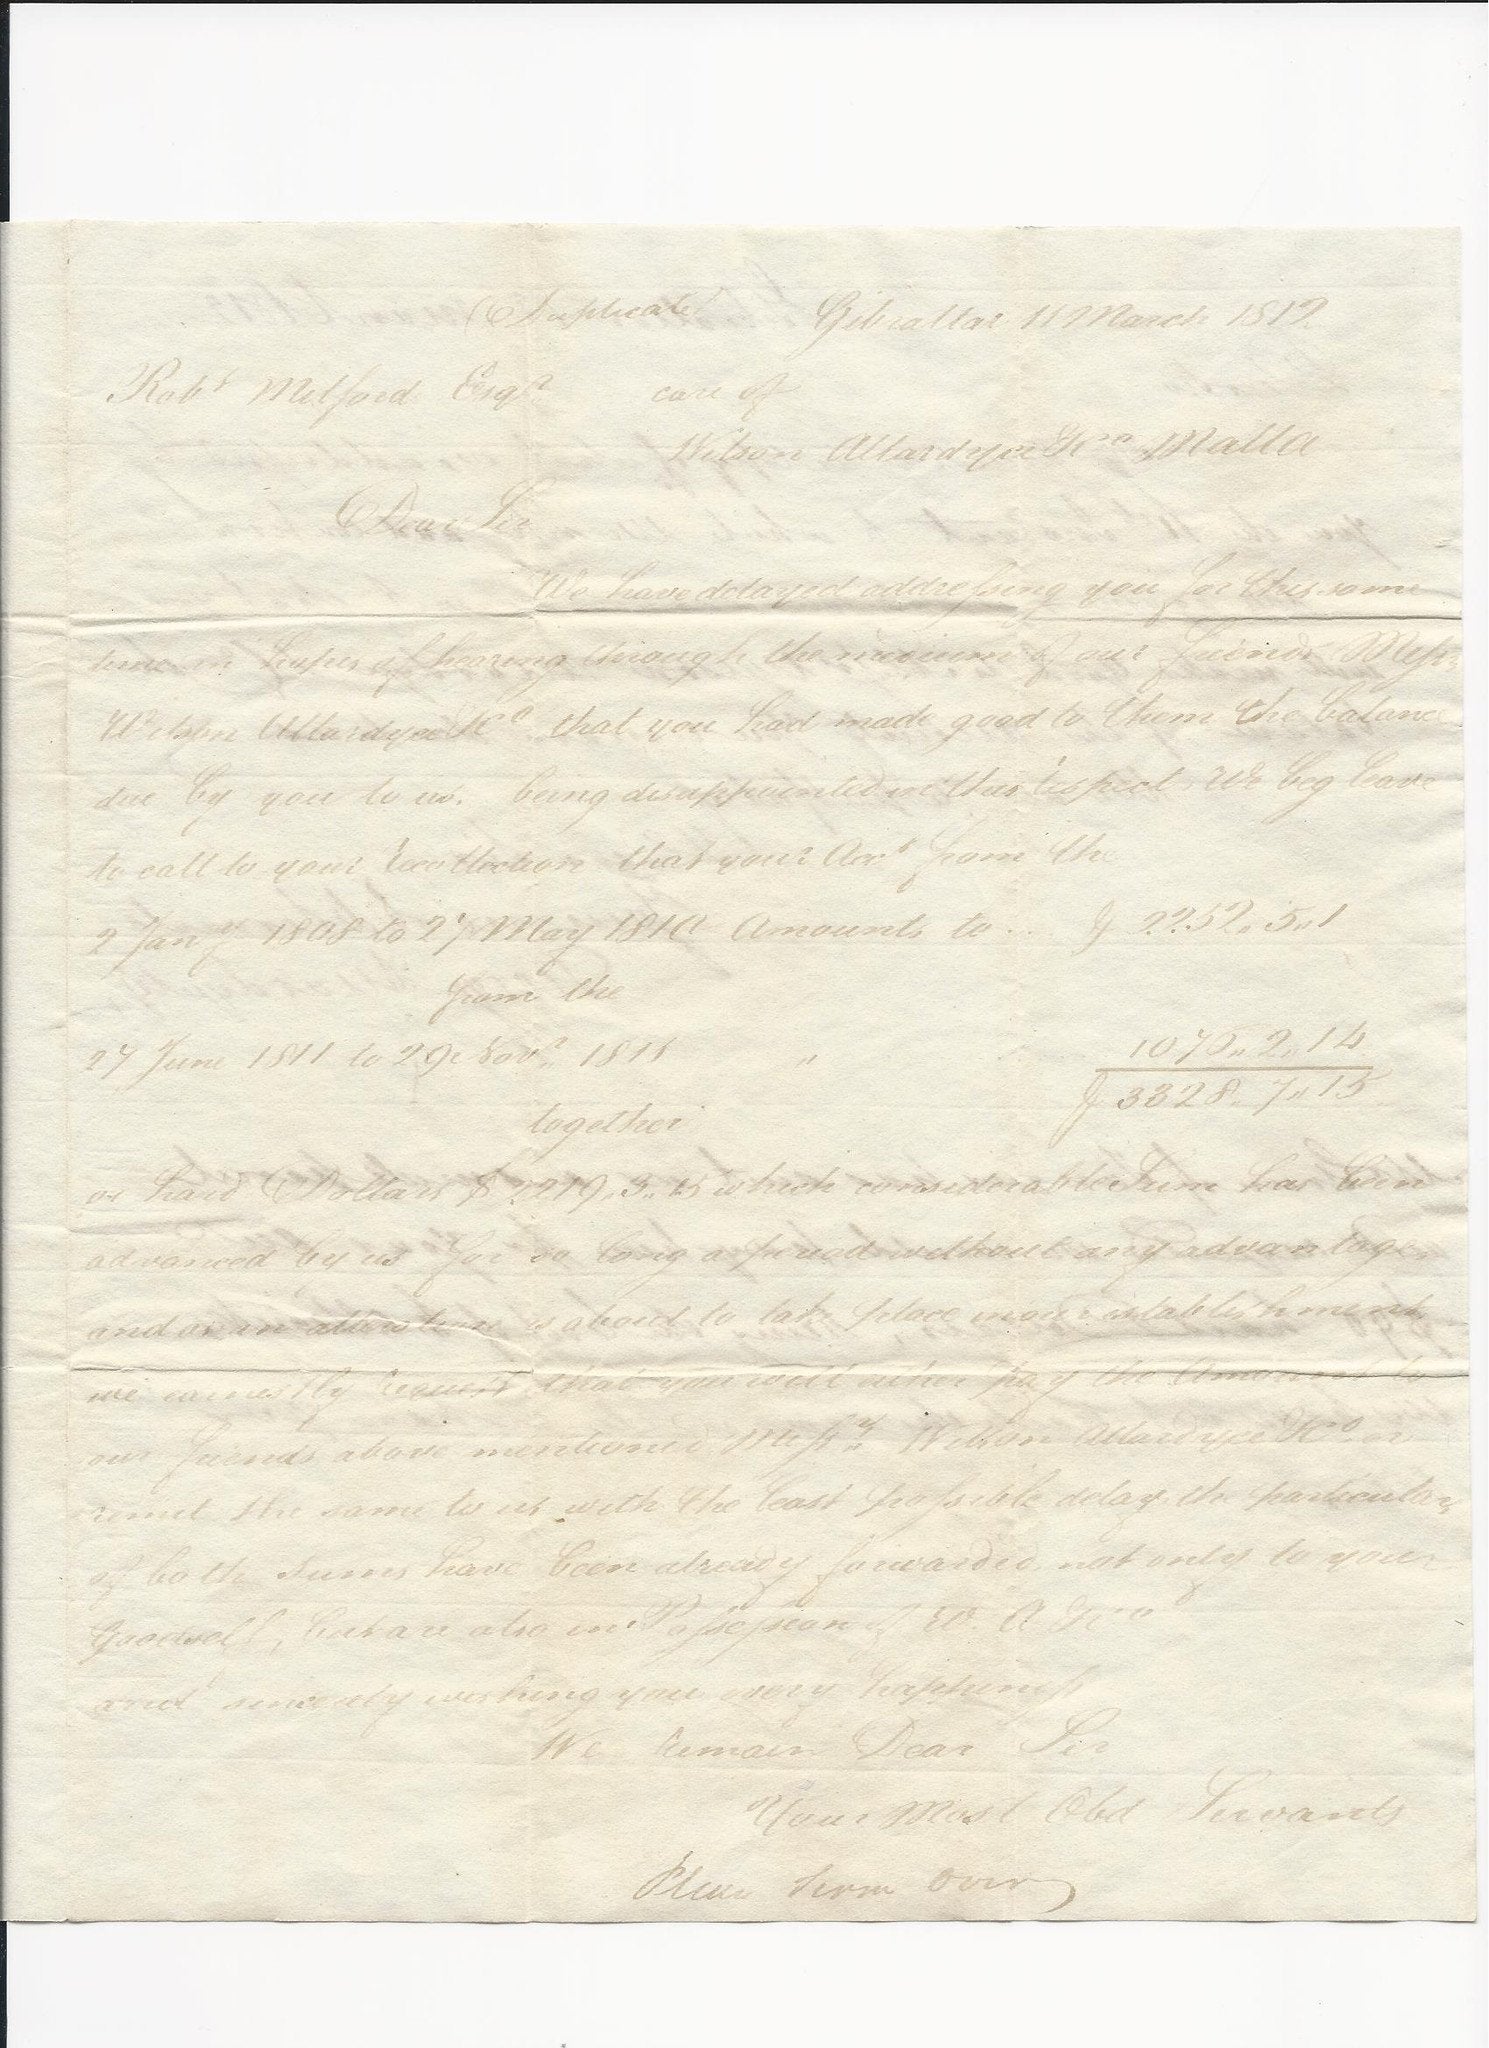 (Duplicate) Gibraltar 11 March 1812
Robt Mitford Esqr care of
Wilson Allardyce & Co Malta
Dear Sir
We have delayed addressing you for this some
time in hopes of hearing through the medium of our friends Messrs
Wilson Allardyce & Co that you had made good to them the balance
due by you to us. being disappointed in this respect, We beg leave
to call to your recollection that your Acct from the
2 Jany 1808 to 27 May 1810 Amounts to ... $ 2252,, 5,, 1
from the
27 June 1811 to 29 Novr 1811 ,, 1075,, 2,, 14
$ 3328,, 7,, 15
together
or hard Dollars 219,, 3,, which considerable Sum has been
advanced by us for so long a period without any advantage,
and as an alteration is about to take place in our establishment
we earnestly request that you will either pay the Amount to
our friends above mentioned Messrs Wilson Allardyce & Co or
remit the same to us with the least possible delay. the particulars
of both sums have been already forwarded not only to your
Goodself, but are also in Possession of W. A & Co
and sincerely wishing you every happiness
We remain Dear Sir
Your Most Obd Servants
Please turn Over